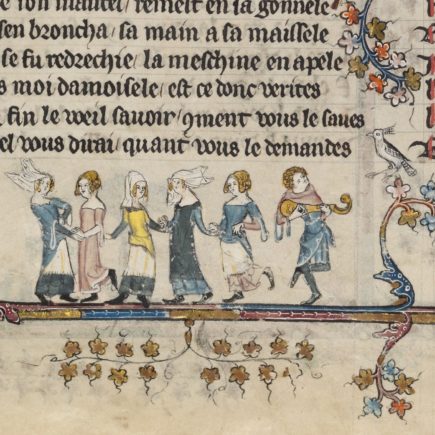 son mantel / remest en sa gonnele
sen broncha / sa main a sa maissele
se fu redrechie / la meschine en apele
s moi damoisele / est ce donc verites
fin le weil sauoir / ꝯment vous le saues
el vous dirai / quant vous le demandes